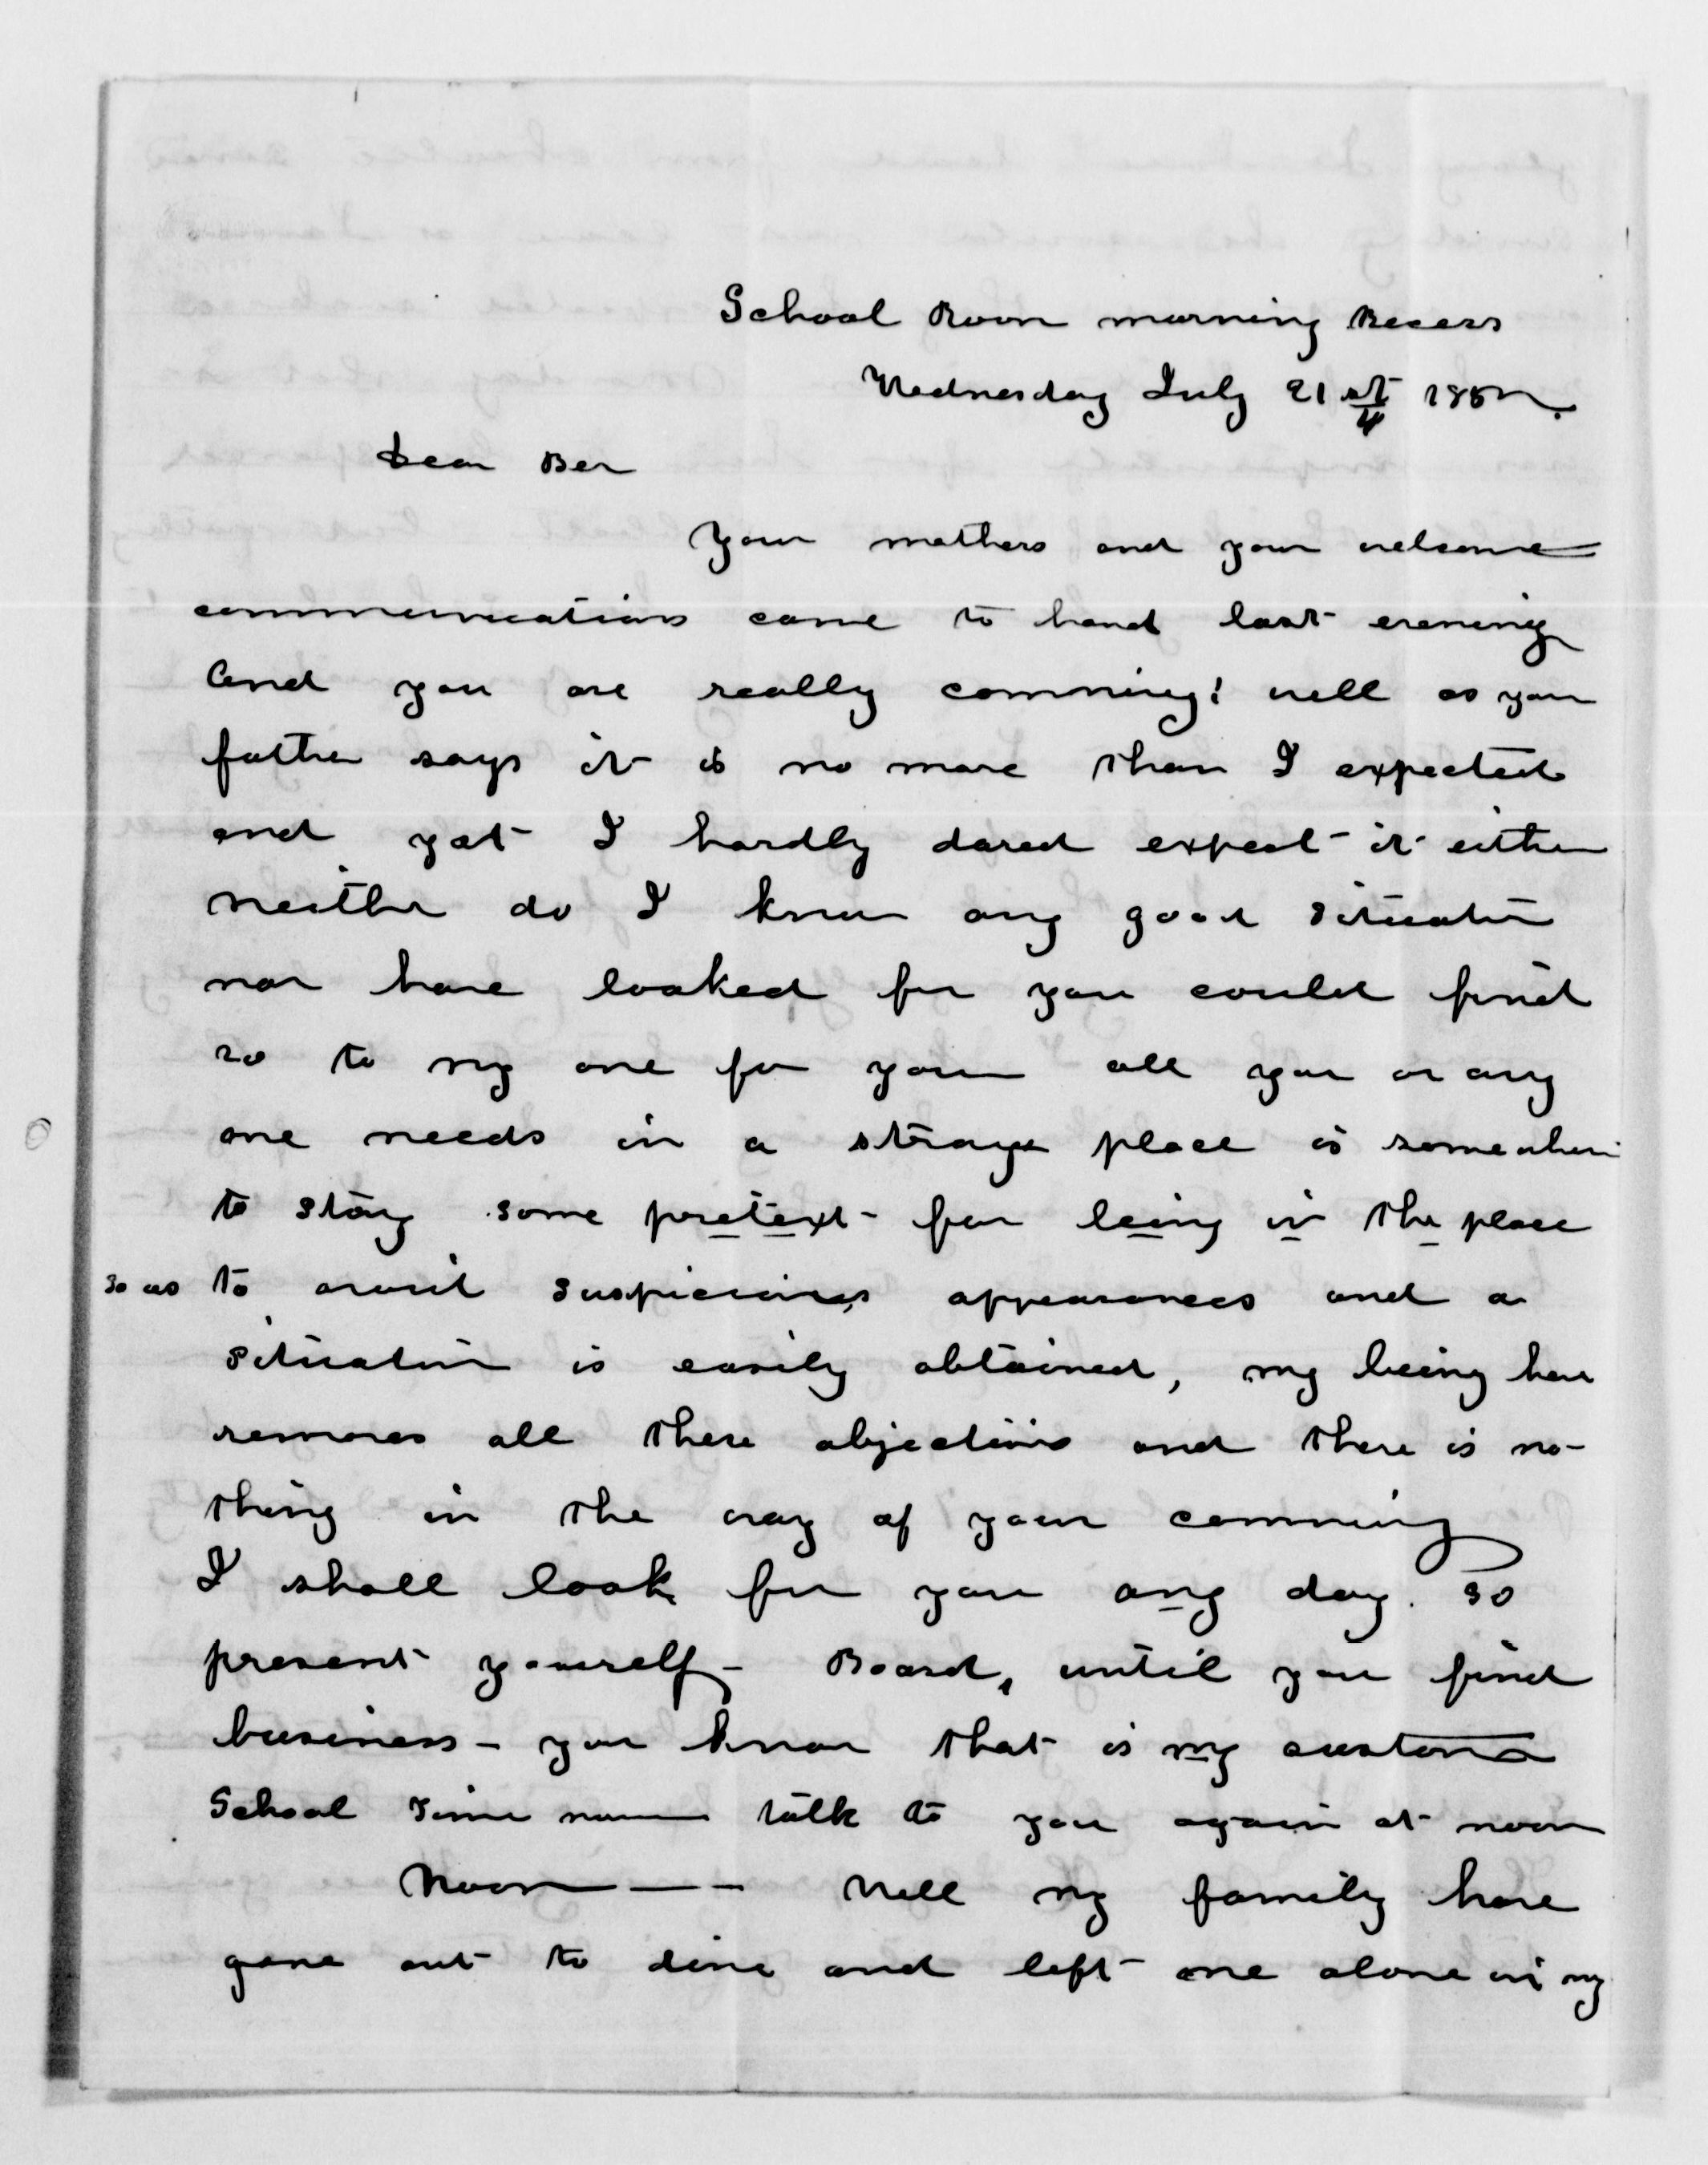 School Room morning Recess
Wednesday July 21st 1852.
Dear Ber
Your mothers and your welcome
communications came to hand last evening
and you are really comming! well as your
father says it is no more than I expected
and yet I hardly dared expect it either
neither do I know any good situation
nor have looked for you could find
20 to my one for your all you or any
one needs in a strange place is somewhere
to stay some pretext for being in the place
so as to avoid suspicious appearances and a
situation is easily obtained, my being here
removes all these objections and there is no-
thing in the way of your comming
I shall look for you any day. So
present yourself - Board, until you find
business - you know that is my custom
School time now talk to you again at noon
Noon - - Well my family have
gone out to dine and left me alone in my